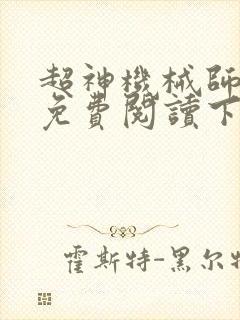 超神機械師
免費閱讀下
霍斯特-黑尔特